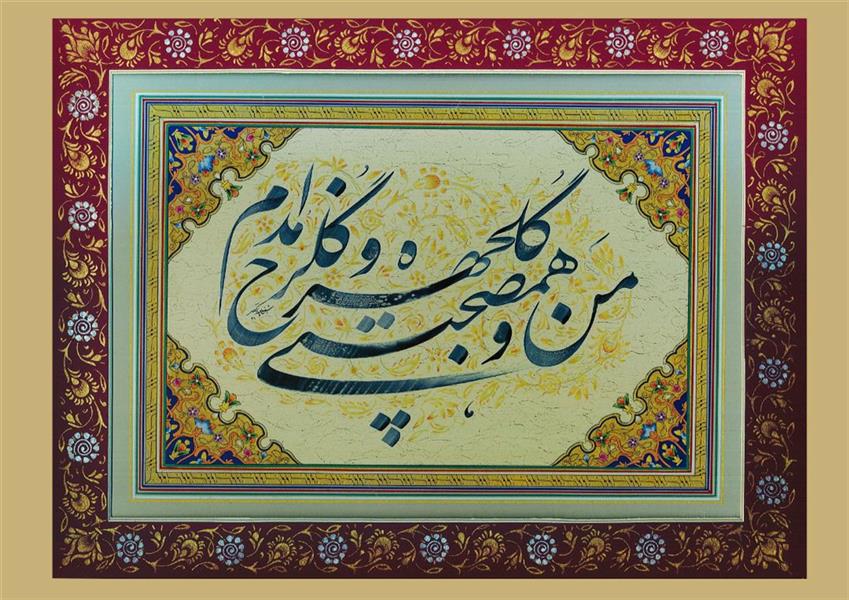 من و همصحبتی گلچهره و گلرخ